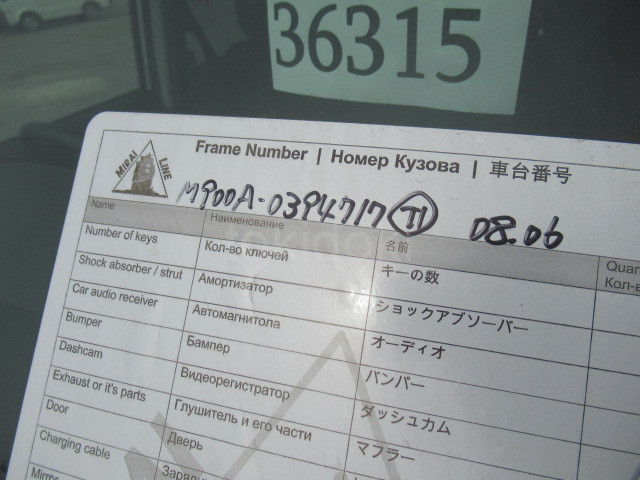 36315
MIRAI LINE
Frame Number | Номер Кузова | 車台番号
M900A-0394717 T1 08.06
Name Наименование 名前
Number of keys Кол-во ключей キーの数
Shock absorber / strut Амортизатор ショックアブソーバー
Car audio receiver Автомагнитола オーディオ
Bumper Бампер バンパー
Dashcam Видеорегистратор ダッシュカム
Exhaust or it's parts Глушитель и его части マフラー
Door Дверь
Charging cable
Mirror